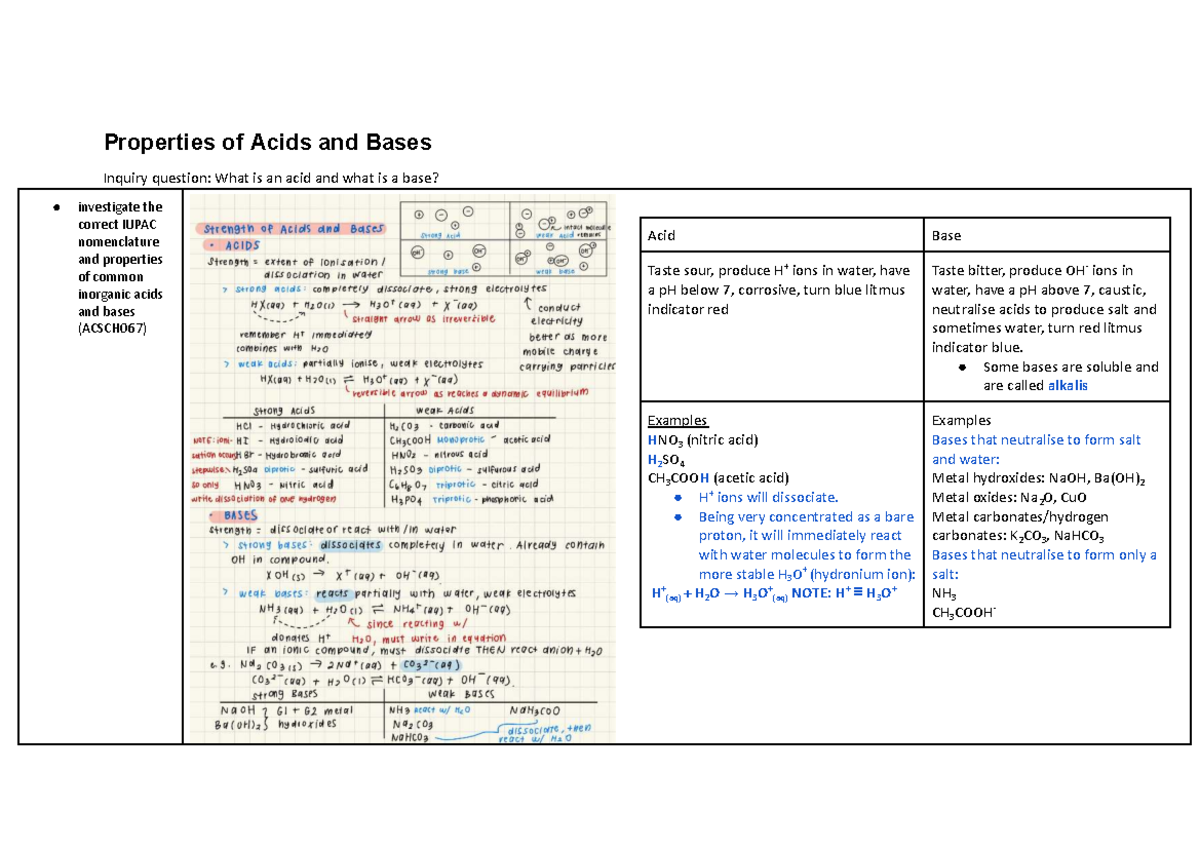 Properties of Acids and Bases
Inquiry question: What is an acid and what is a base?
● investigate the
correct IUPAC
nomenclature
and properties
of common
inorganic acids
and bases
(ACSCH067)
Strength of Acids and Bases
• ACIDS
Strength = extent of ionisation /
dissociation in water
strong acid
intact molecule
weak acid remains
OH⁻
strong base
OH⁻
weak base
> strong acids: completely dissociate, strong electrolytes
HX(aq) + H₂O(l) → H₃O⁺(aq) + X⁻(aq)
straight arrow as irreversible
remember H⁺ immediately
combines with H₂O
↑ conduct
electricity
better as more
mobile charge
carrying particles
> weak acids: partially ionise, weak electrolytes
HX(aq) + H₂O(l) ⇌ H₃O⁺(aq) + X⁻(aq)
reversible arrow as reaches a dynamic equilibrium
strong Acids
weak Acids
HCl - Hydrochloric acid
H₂CO₃ - carbonic acid
NOTE: ioni- HI - Hydroiodic acid
CH₃COOH Monoprotic - acetic acid
sation occurs HBr - Hydrobromic acid
HNO₂ - nitrous acid
stepwise, H₂SO₄ Diprotic - sulfuric acid
H₂SO₃ Diprotic - sulfurous acid
so only HNO₃ - Nitric acid
C₆H₈O₇ Triprotic - citric acid
write dissociation of one hydrogen
H₃PO₄ Triprotic - phosphoric acid
• BASES
Strength = dissociate or react with/in water
> strong bases: dissociates completely in water. Already contain
OH in compound.
XOH(s) → X⁺(aq) + OH⁻(aq)
> weak bases: reacts partially with water, weak electrolytes
NH₃(aq) + H₂O(l) ⇌ NH₄⁺(aq) + OH⁻(aq)
since reacting w/
donates H⁺ H₂O, must write in equation
IF an ionic compound, must dissociate THEN react anion + H₂O
e.g. Na₂CO₃(s) → 2Na⁺(aq) + CO₃²⁻(aq)
CO₃²⁻(aq) + H₂O(l) ⇌ HCO₃⁻(aq) + OH⁻(aq)
strong Bases
weak Bases
NaOH } G1 + G2 metal
NH₃ react w/ H₂O NaH₃COO
Ba(OH)₂ } hydroxides
Na₂CO₃
NaHCO₃
dissociate, then
react w/ H₂O
Acid
Base
Taste sour, produce H⁺ ions in water, have
a pH below 7, corrosive, turn blue litmus
indicator red
Taste bitter, produce OH⁻ ions in
water, have a pH above 7, caustic,
neutralise acids to produce salt and
sometimes water, turn red litmus
indicator blue.
● Some bases are soluble and
are called alkalis
Examples
HNO₃ (nitric acid)
H₂SO₄
CH₃COOH (acetic acid)
● H⁺ ions will dissociate.
● Being very concentrated as a bare
proton, it will immediately react
with water molecules to form the
more stable H₃O⁺ (hydronium ion):
H⁺(aq) + H₂O → H₃O⁺(aq) NOTE: H⁺ ≡ H₃O⁺
Examples
Bases that neutralise to form salt
and water:
Metal hydroxides: NaOH, Ba(OH)₂
Metal oxides: Na₂O, CuO
Metal carbonates/hydrogen
carbonates: K₂CO₃, NaHCO₃
Bases that neutralise to form only a
salt:
NH₃
CH₃COOH⁻